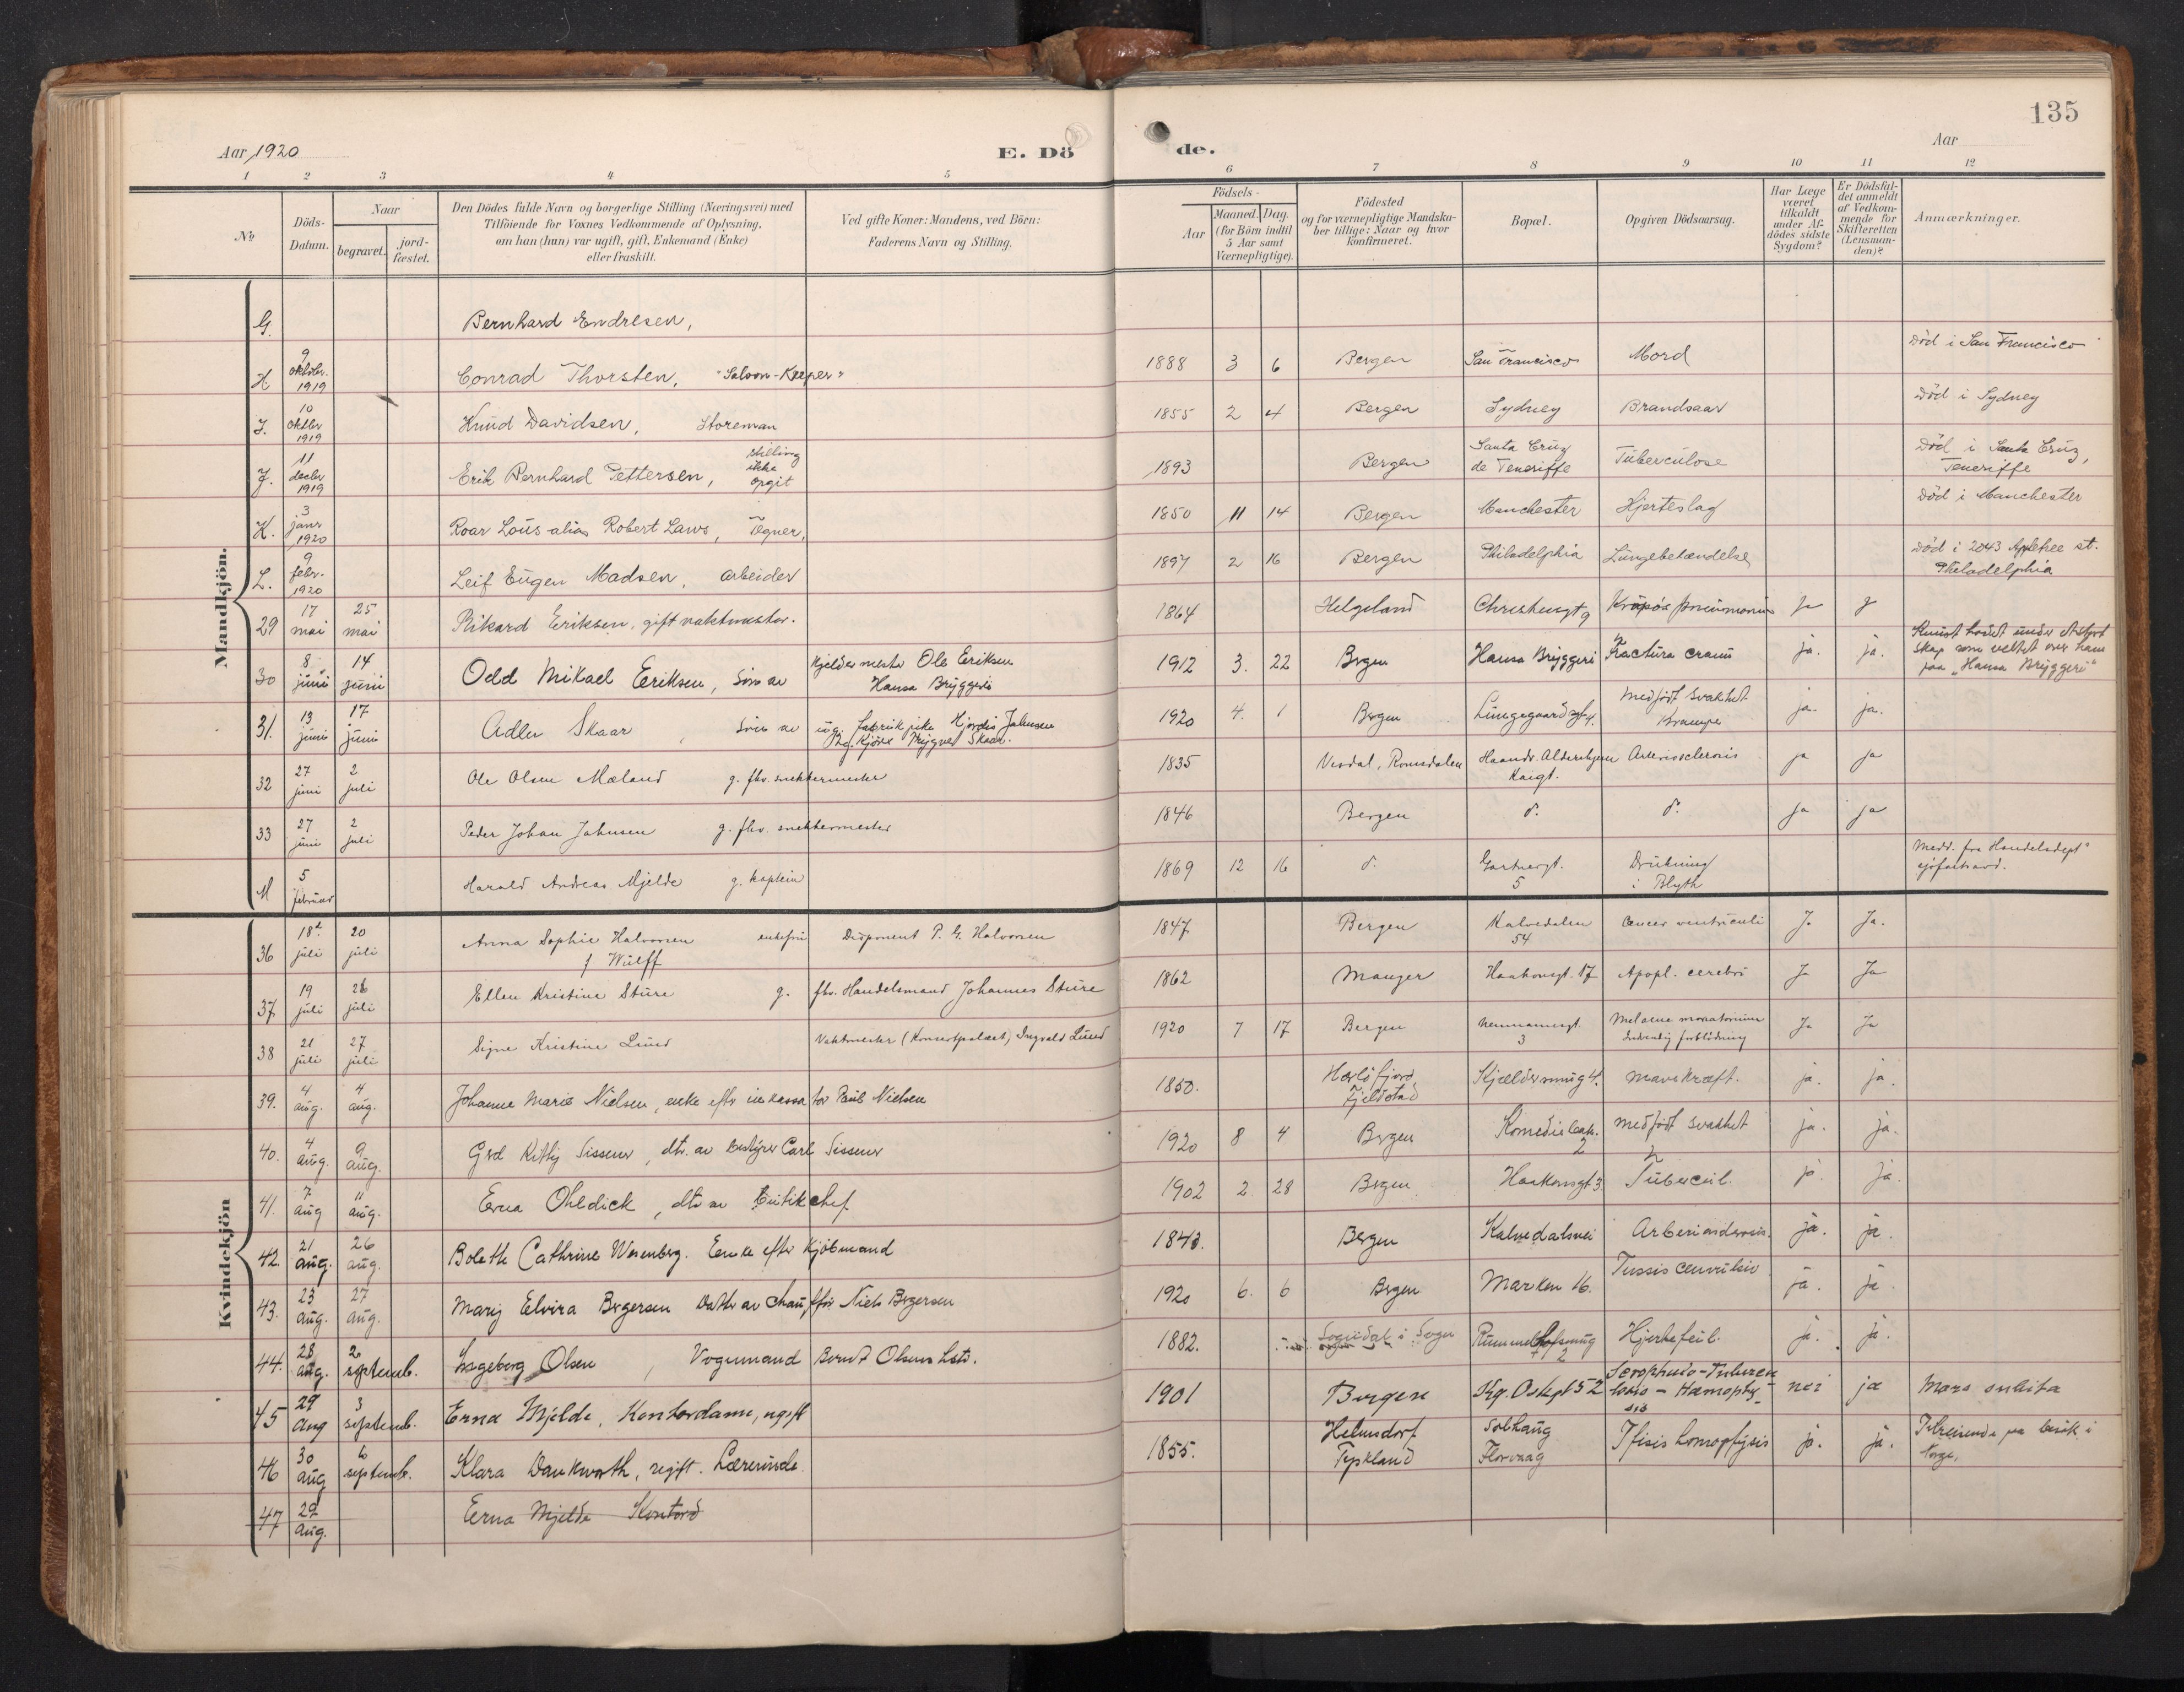 135
Aar 1920
E. Dö
de.
Aar
1 2 3 4 5 6 7 8 9 10 11 12
No
Döds-Datum.
Naar
begravet.
jord-fæstet.
Den Dödes fulde Navn og borgerlige Stilling (Næringsvei) med
Tilföiende for Voxnes Vedkommende af Oplysning,
om han (hun) var ugift, gift, Enkemand (Enke)
eller fraskilt.
Ved gifte Koner: Mandens, ved Börn:
Faderens Navn og Stilling.
Födsels-
Aar
Maaned. Dag.
(for Börn indtil
5 Aar samt
Værnepligtige).
Födested
og for værnepligtige Mandska-
ber tillige: Naar og hvor
konfirmeret.
Bopæl.
Opgiven Dödsaarsag.
Har Læge
været
tilkaldt
under Af-
dödes sidste
Sygdom?
Er Dödsfal-
det anmeldt
af Vedkom-
mende for
Skifteretten
(Lensman-
den)?
Anmærkninger.
Mandkjön.
G. Bernhard Endresen,
H 9 oktober 1919 Conrad Thorsten, "Saloon-Keeper" 1888 3 6 Bergen San Francisco Mord Död i San Francisco
I. 10 oktbr 1919 Knud Davidsen, Storeman 1855 2 4 Bergen Sydney Brandsaar Död i Sydney
J. 11 decbr 1919 Erik Bernhard Pettersen, stilling ikke opgit 1893 Bergen Santa Cruz de Teneriffe Tuberculose Död i Santa Cruz, Teneriffe
K. 3 janr 1920 Roar Lous alias Robert Laws, Tegner, 1850 11 14 Bergen Manchester Hjerteslag Död i Manchester
L. 9 febr. 1920 Leif Eugen Madsen, arbeider 1897 2 16 Bergen Philadelphia Lungebetændelse Död i 2043 Appletree st. Philadelphia
29 17 mai 25 mai Rikard Eriksen, gift vaktmester. 1864 Helgeland 9 Krupös pneumonia ja
30 8 juni 14 juni Odd Mikael Eriksen, sön av Kjeldermester Ole Eriksen Hansa Bryggeri 1912 3. 22 Bergen Hansa Bryggeri Fractura cranii ja. ja. Knust hodet under et stort skap som veltet over ham paa "Hansa Bryggeri"
31. 13 juni 17 juni Adler Skaar, sön av ug. fabrikpike Hjördis Johnsen Skaar. 1920 4. 1 Bergen Lungegaardsgt 4. Medfödt svakhet Krampe ja. ja.
32 27 juni 2 juli Ole Olsen Mæland g. fhv. snekkermester 1835 Romsdalen Haandv. Aldershjem Kaigt. Arteriosclerosis ja ja
33 27 juni 2 juli Peder Johan Johnsen g. fhv. snekkermester 1846 Bergen do. do. ja ja
M 5 februar Harald Andreas Mjelde g. kaptein 1869 12 16 do. Gartnergt. 5 Drukning i Blyth Medd. fra Handelsdept sjöfartsavd.
Kvindekjön
36 18de juli 20 juli Anna Sophie Halvorsen f Wulff enkefru Disponent P. G. Halvorsen 1847 Bergen Kalvedalen 54 Cancer ventriculi J. Ja.
37 19 juli 26 juli Ellen Kristine Sture g. fhv. Handelsmand Johannes Sture 1862 Manger Haakonsgt. 17 Apopl. cerebri J Ja
38 21 juli 27 juli Signe Kristine Lund Vaktmester (Konsertpalæet) Ingvald Lund 1920 7 17 Bergen Neumannsgt. 3 Melaena neonatorum Indvendig forblödning Ja Ja
39. 4 aug. 4 aug. Johanne Marie Nielsen, enke efter inkassator Paul Nielsen 1850. Fjeldstad Kjeldersmug 4. Mavekræft. ja. ja.
40. 4 aug. 9 aug. Gerd Kitty Sissener, dtr. av bestyrer Carl Sissener 1920 8 4 Bergen 2 medfödt svakhet ja. ja.
41. 7 aug 11 aug. Erna Ohldick, dtr av Butikchef 1902 2. 28 Bergen Haakonsgt 3 Tubercul. ja. ja.
42. 21 aug. 26 aug. Boleth Cathrine Wesenberg. Enke efter Kjöbmand 1843. Bergen Kalvedalsvei ja. ja.
43. 23 aug. 27 aug. Mary Elvira Birgersen Datter av chauffør Niels Birgersen 1920 6. 6 Bergen Marken 16. Tussis convulsiv ja. ja.
44. 28 aug. 2 septemb. Ingeborg Olsen, Vognmand Bernt Olsens hstr. 1882. Sogndal i Sogn Rummelhofsmug 2 Hjertefeil. ja. ja.
45 29 aug 3 septemb. Erna Mjelde, Kontordame, ugift 1901 Bergen Kg. Oskgt 52 Scrophulo-Tuberculosis - Hæmoptysis nei ja Mors subita
46 30 aug 6 septemb. Klara Dankworth, ugift. Lærerinde 1855. Helmsdorf Tyskland Solhaug Florvaag Ftisis hæmoptysis ja. ja. Tilreisende paa besök i Norge.
47 29 aug. Erna Mjelde Kontord